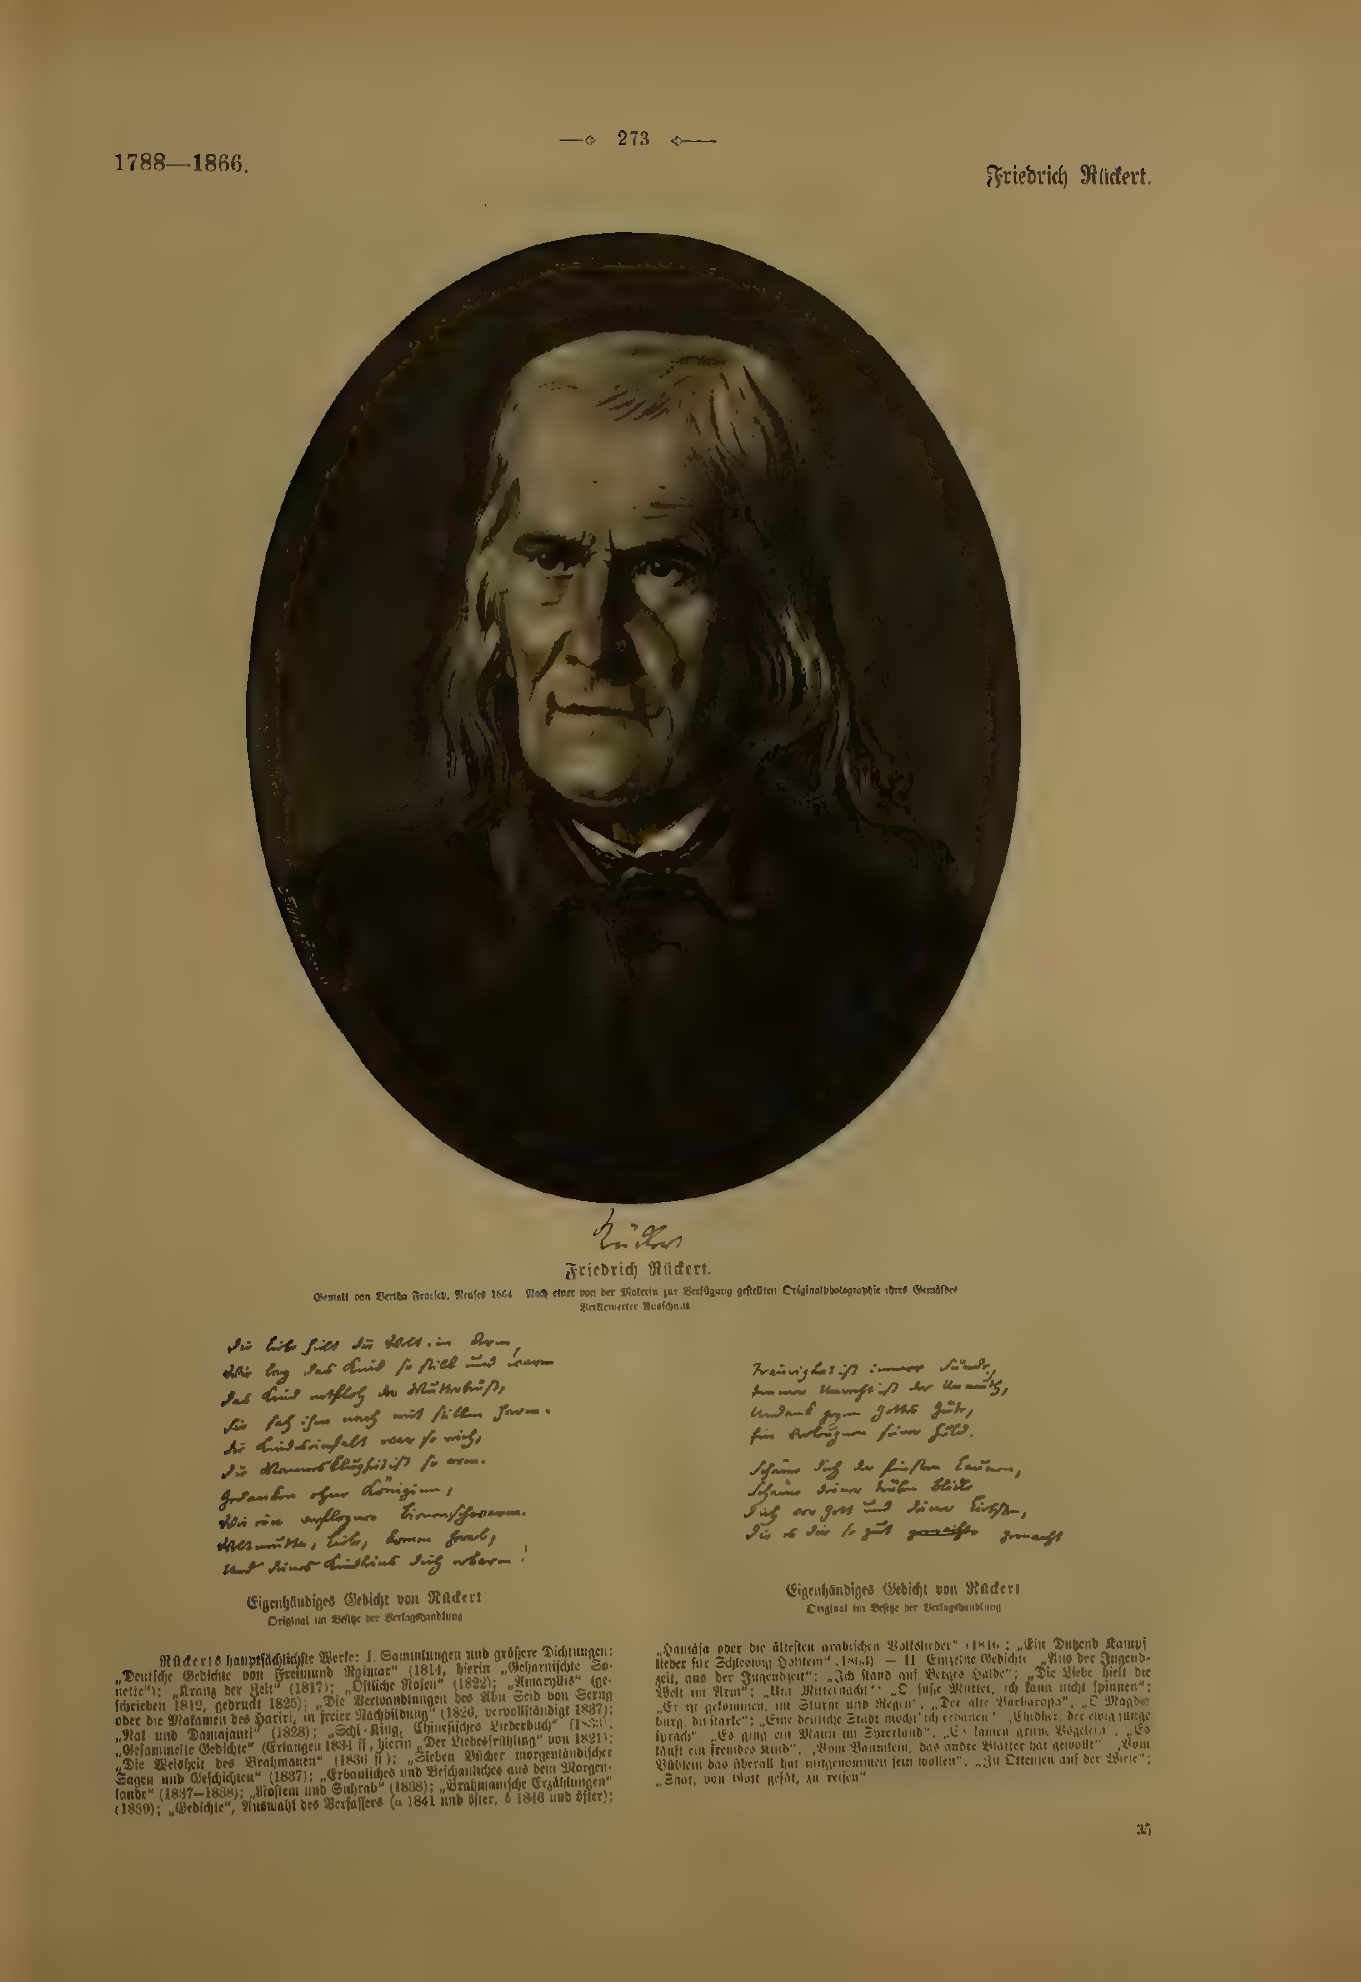 273
1788—1866.
Friedrich Rückert.
Rückert
Friedrich Rückert.
Gemalt von Bertha Froriep, Neuses 1864 Nach einer von der Malerin zur Verfügung gestellten Originalphotographie ihres Gemäldes
Verkleinerter Ausschnitt
Die Liebe hielt die Welt im Arm,
Wie lag das Kind so still und warm
Das Kind entfloh der Mutterbrust,
Sie sah ihm nach mit stillem Harm.
Die Kindereinfalt war so reich,
Die Mannesklugheit ist so arm.
Gedanken ohne Königinn,
Wie ein verflogner Bienenschwarm.
Weltmutter, Liebe, komm herab,
Und deines Kindleins dich erbarm!
Eigenhändiges Gedicht von Rückert
Original im Besitze der Verlagshandlung
Traurigkeit ist immer Sünde,
Immer Unrecht ist der Unmuth,
Undank gegen Gottes Güte,
Ein Verleugnen seiner Huld.
Schäme dich der finstern Launen,
Schäme deiner trüben Blicke
Dich vor Gott und deiner Liebsten,
Die es dir so gut gemacht
Eigenhändiges Gedicht von Rückert
Original im Besitze der Verlagshandlung
Rückerts hauptsächlichste Werke: I. Sammlungen und größere Dichtungen:
„Deutsche Gedichte von Freimund Raimar“ (1814, hierin „Geharnischte So-
nette“); „Kranz der Zeit“ (1817); „Östliche Rosen“ (1822); „Amaryllis“ (ge-
schrieben 1812, gedruckt 1825); „Die Verwandlungen des Abu Seid von Serug
oder die Makamen des Hariri, in freier Nachbildung“ (1826, vervollständigt 1837);
„Nal und Damajanti“ (1828); „Schi-King, Chinesisches Liederbuch“ (1833),
„Gesammelte Gedichte“ (Erlangen 1834 ff, hierin „Der Liebesfrühling“ von 1821);
„Die Weisheit des Brahmanen“ (1836 ff); „Sieben Bücher morgenländischer
Sagen und Geschichten“ (1837); „Erbauliches und Beschauliches aus dem Morgen-
lande“ (1837—1838); „Rostem und Suhrab“ (1838); „Brahmanische Erzählungen“
(1839); „Gedichte“, Auswahl des Verfassers (a 1841 und öfter, b 1846 und öfter);
„Hamâsa oder die ältesten arabischen Volkslieder“ (1846); „Ein Dutzend Kampf
lieder für Schleswig Holstein“ (1863) — II Einzelne Gedichte „Aus der Jugend-
zeit, aus der Jugendzeit“; „Ich stand auf Berges Halde“; „Die Liebe hielt die
Welt im Arm“; „Um Mitternacht“; „O süße Mutter, ich kann nicht spinnen“;
„Er ist gekommen, im Sturm und Regen“, „Der alte Barbarossa“, „O Magde
burg, du starke“; „Eine deutsche Stadt möcht' ich erbauen“ „Chidher, der ewig junge
sprach“ „Es ging ein Mann im Syrerland“, „Es kamen grüne Vögelein“, „Es
läuft ein fremdes Kind“, „Vom Bäumlein, das andre Blätter hat gewollt“ „Vom
Büblein das überall hat mitgenommen sein wollen“, „Zu Ottensen auf der Wiese“;
„Saat, von Gott gesät, zu reifen“
35